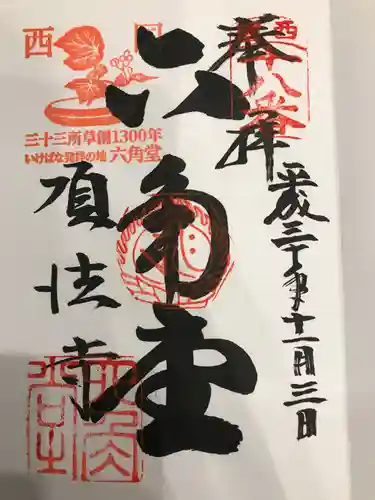 奉拝
西十八番
平成三十年十一月三日
六角堂
西国
三十三所草創1300年
いけばな発祥の地 六角堂
頂法寺